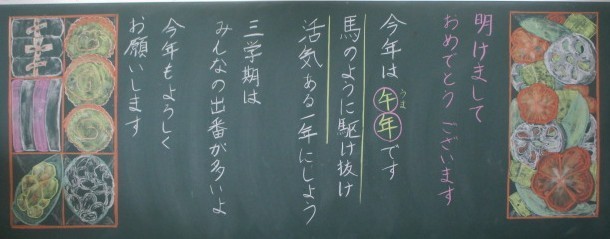 明けまして
おめでとうございます
今年は午年です
うま
馬のように駆け抜け
活気ある一年にしよう
三学期は
みんなの出番が多いよ
今年もよろしく
お願いします